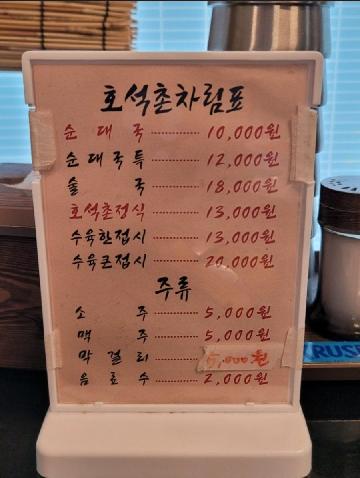 호석촌차림표
순대국 ---------- 10,000원
순대국특 ---------- 12,000원
술국 ---------- 18,000원
호석촌정식 ---------- 13,000원
수육한접시 ---------- 13,000원
수육큰접시 ---------- 20,000원
주류
소주 ---------- 5,000원
맥주 ---------- 5,000원
막걸리 ---------- ,000원
음료수 ---------- 2,000원